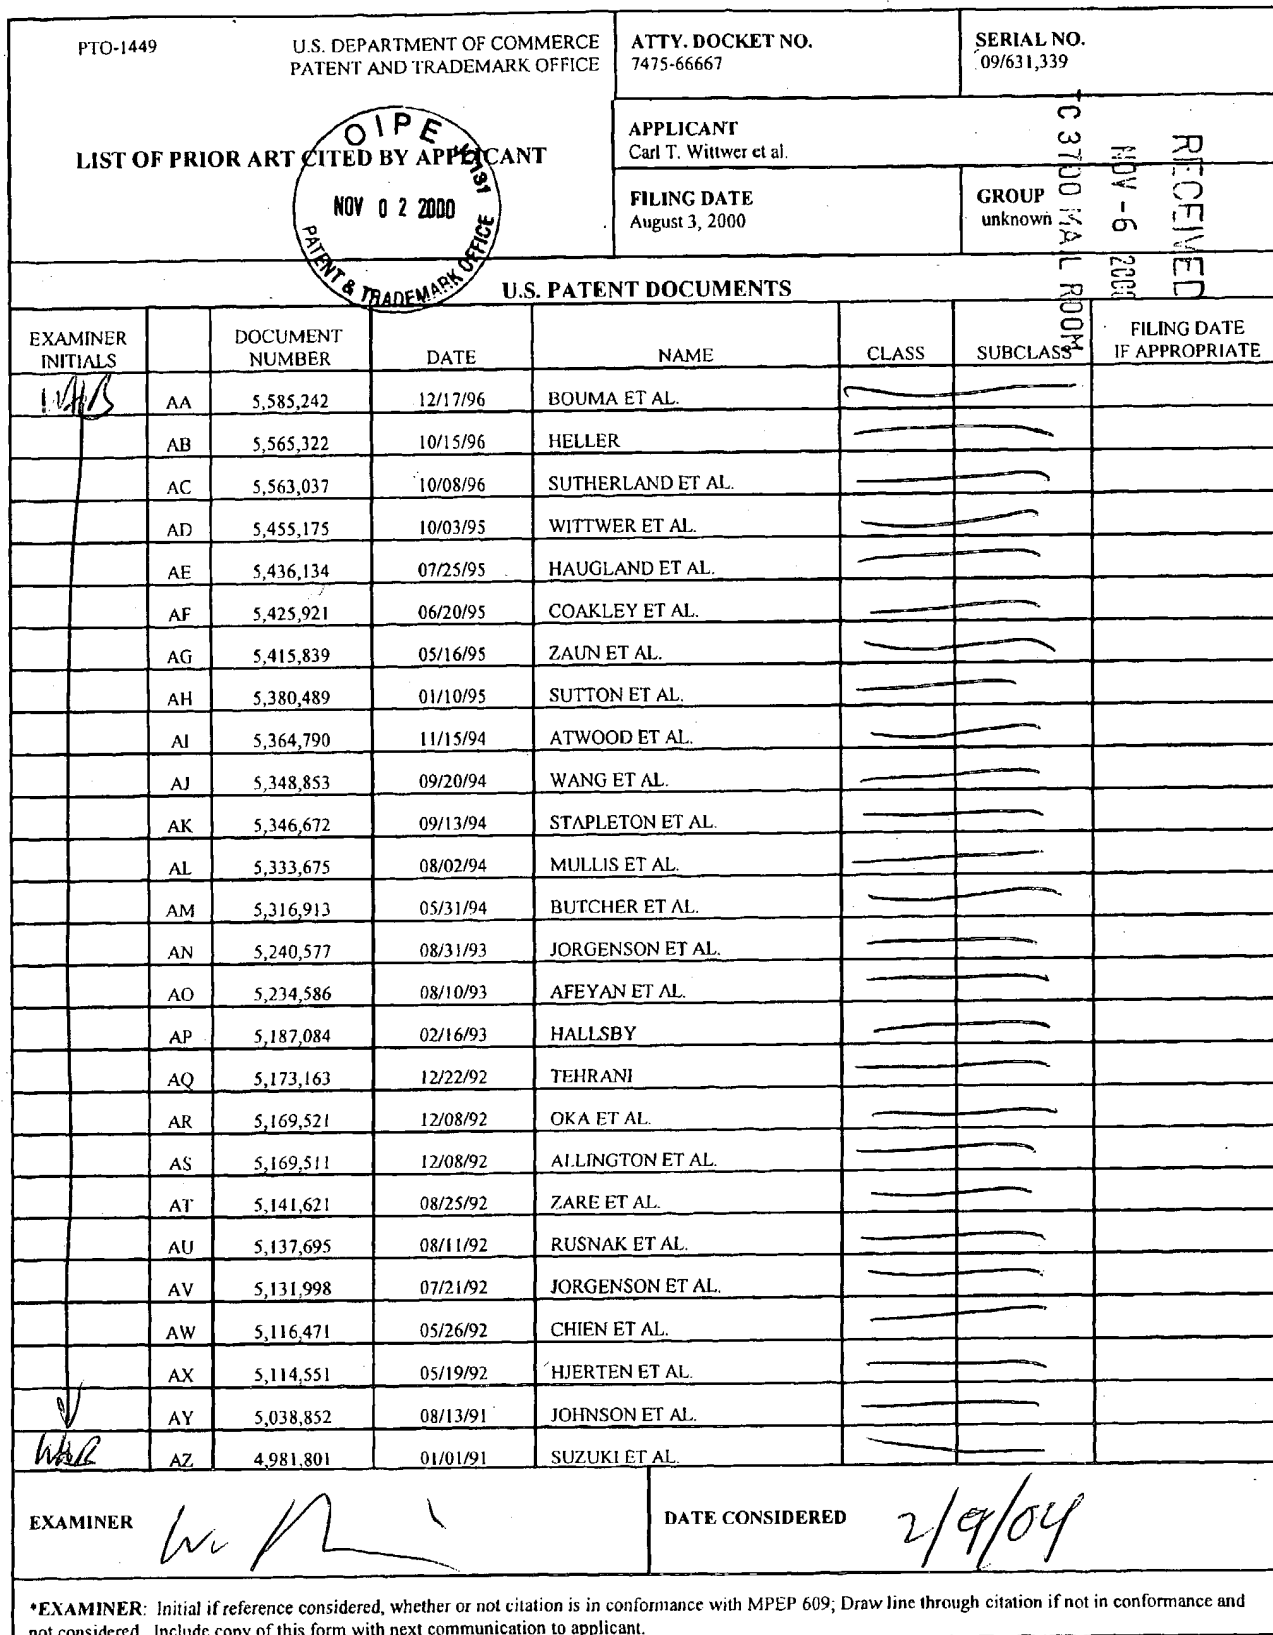 PTO-1449
U.S. DEPARTMENT OF COMMERCE
PATENT AND TRADEMARK OFFICE
ATTY. DOCKET NO.
7475-66667
SERIAL NO.
09/631,339
LIST OF PRIOR ART CITED BY APPLICANT
APPLICANT
Carl T. Wittwer et al.
FILING DATE
August 3, 2000
GROUP
unknown
OIPE
NOV 02 2000
PATENT & TRADEMARK OFFICE
RECEIVED
NOV -6 2000
TC 3700 MAIL ROOM
U.S. PATENT DOCUMENTS
EXAMINER INITIALS DOCUMENT NUMBER DATE NAME CLASS SUBCLASS FILING DATE IF APPROPRIATE
AA 5,585,242 12/17/96 BOUMA ET AL.
AB 5,565,322 10/15/96 HELLER
AC 5,563,037 10/08/96 SUTHERLAND ET AL.
AD 5,455,175 10/03/95 WITTWER ET AL.
AE 5,436,134 07/25/95 HAUGLAND ET AL.
AF 5,425,921 06/20/95 COAKLEY ET AL.
AG 5,415,839 05/16/95 ZAUN ET AL.
AH 5,380,489 01/10/95 SUTTON ET AL.
AI 5,364,790 11/15/94 ATWOOD ET AL.
AJ 5,348,853 09/20/94 WANG ET AL.
AK 5,346,672 09/13/94 STAPLETON ET AL.
AL 5,333,675 08/02/94 MULLIS ET AL.
AM 5,316,913 05/31/94 BUTCHER ET AL.
AN 5,240,577 08/31/93 JORGENSON ET AL.
AO 5,234,586 08/10/93 AFEYAN ET AL.
AP 5,187,084 02/16/93 HALLSBY
AQ 5,173,163 12/22/92 TEHRANI
AR 5,169,521 12/08/92 OKA ET AL.
AS 5,169,511 12/08/92 ALLINGTON ET AL.
AT 5,141,621 08/25/92 ZARE ET AL.
AU 5,137,695 08/11/92 RUSNAK ET AL.
AV 5,131,998 07/21/92 JORGENSON ET AL.
AW 5,116,471 05/26/92 CHIEN ET AL.
AX 5,114,551 05/19/92 HJERTEN ET AL.
AY 5,038,852 08/13/91 JOHNSON ET AL.
AZ 4,981,801 01/01/91 SUZUKI ET AL.
EXAMINER
DATE CONSIDERED 2/9/04
*EXAMINER: Initial if reference considered, whether or not citation is in conformance with MPEP 609; Draw line through citation if not in conformance and
not considered. Include copy of this form with next communication to applicant.